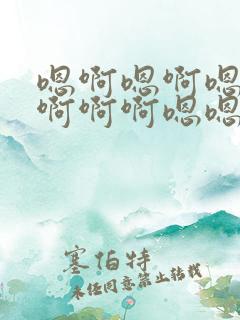 嗯啊嗯啊嗯
啊啊啊嗯嗯
塞伯特
未经同意禁止转载